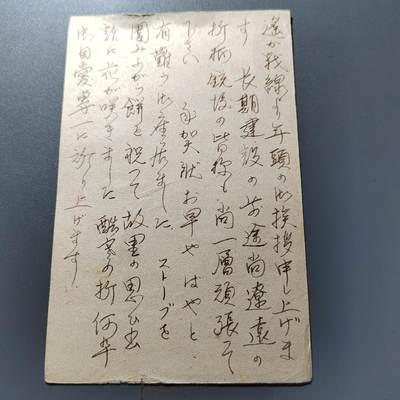 遙か戦線より年頭の御挨拶申し上げま
す 長期建設の前途尚遼遠の
折柄銃後の皆様も尚一層頑張って
下さい 年賀状お早やばやと
有難う御座居ました ストーブを
囲みながら餅を祝って故里の思ひ出
話に花が咲きました 酷寒の折何卒
御自愛専一に祈り上げます